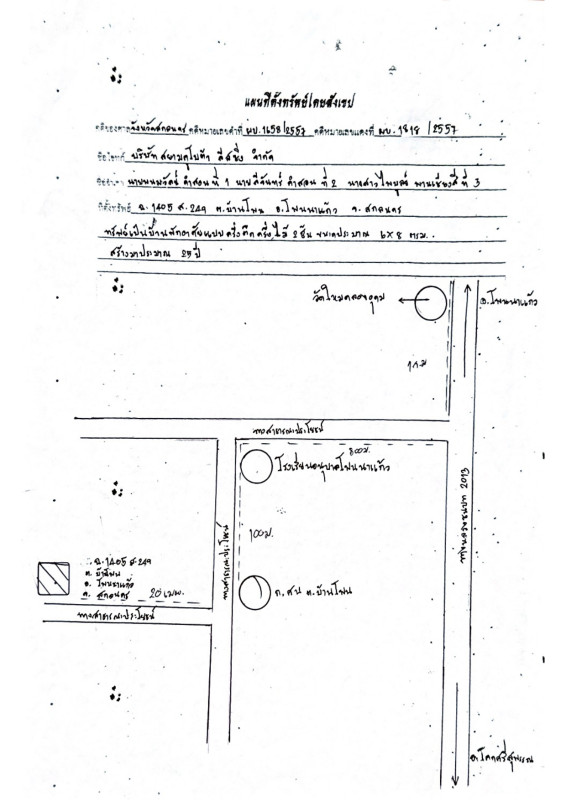 แผนที่ตั้งทรัพย์โดยสังเขป
คดีของศาลจังหวัดสกลนคร คดีหมายเลขดำที่ ผบ. 1658/2557 คดีหมายเลขแดงที่ ผบ. 1818 /2557
ชื่อโจทก์ บริษัท สยามคูโบต้า ลีสซิ่ง จำกัด
ที่ 1 นายสีจันทร์ คำสอน ที่ 2 นางสาวไพบูลย์ ที่ 3
ที่ตั้งทรัพย์ ฉ.1405 ส.249 ต.บ้านโพน อ.โพนนาแก้ว จ.สกลนคร
ทรัพย์เป็นบ้านพักอาศัยแบบครึ่งตึกครึ่งไม้ 2 ชั้น ขนาดประมาณ 6x8 ตรม.
สร้างมาประมาณ 25 ปี
อ.โพนนาแก้ว
1 กม
ทางสาธารณะประโยชน์
800ม.
โรงเรียนอนุบาลโพนนาแก้ว
100ม.
ทางสาธารณะประโยชน์
ทางหลวงชนบท 2013
ฉ.1405 ส.249
ต. บ้านโพน
อ. โพนนาแก้ว
จ. สกลนคร 20 เมตร.
ต.บ้านโพน
ทางสาธารณะประโยชน์
อ.โคกศรีสุพรรณ